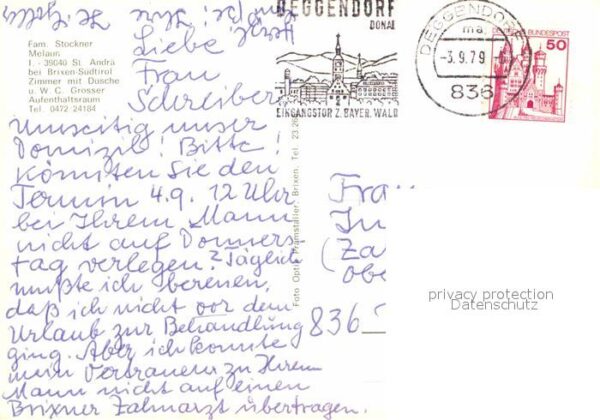 Fam. Stockner
Melaun
I. - 39040 St. Andrä
bei Brixen-Südtirol
Zimmer mit Dusche
u. W. C. Grosser
Aufenthaltsraum
Tel. 0472 24184
Liebe
Frau
Schreiber!
Umseitig unser
Domizil! Bitte!
Könnten Sie den
Termin 4.9. 12 Uhr
bei Ihrem Mann
nicht auf Donners-
tag verlegen? Täglich
mußte ich bereuen,
daß ich nicht vor dem
Urlaub zur Behandlung
ging. Aber ich konnte
mein Vertrauen zu Ihrem
Mann nicht auf einen
Brixner Zahnarzt übertragen.
Herzl. Grüße! Ihre
Foto Optik Pramstaller, Brixen, Tel. 23.26
DEGGENDORF
DONAU
EINGANGSTOR Z. BAYER. WALD
DEGGENDORF
ma
-3.9.79
836
DEUTSCHE BUNDESPOST
50
Frau
(Za
obe
836
privacy protection
Datenschutz